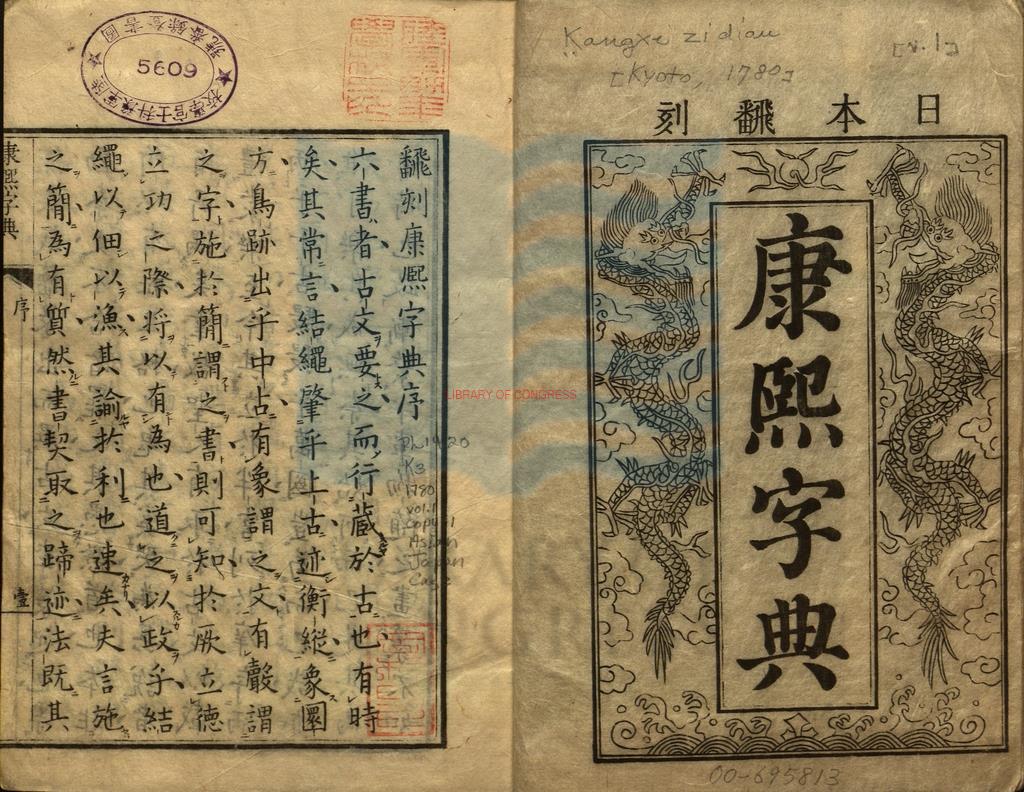 Kangxe zidian
[v.1]
[Kyoto, 1780]
日本翻刻
康熙字典
00-695813
LIBRARY OF CONGRESS
5609
飜刻康熙字典序
六書者古文要之而行藏於古也有時
矣其常言結繩肇乎上古迹衡縱象圜
方鳥跡出乎中古有象謂之文有聲謂
之字施於簡謂之書則可知於厥立德
立功之際將以有為也道之以政乎結
繩以佃以漁其諭於利也速矣夫言施
之簡為有質然書契取之蹄迹法既其
康熙字典
序
壹
PL1420
K3
1780
vol.1
Copy 1
Asian
Japan
Case